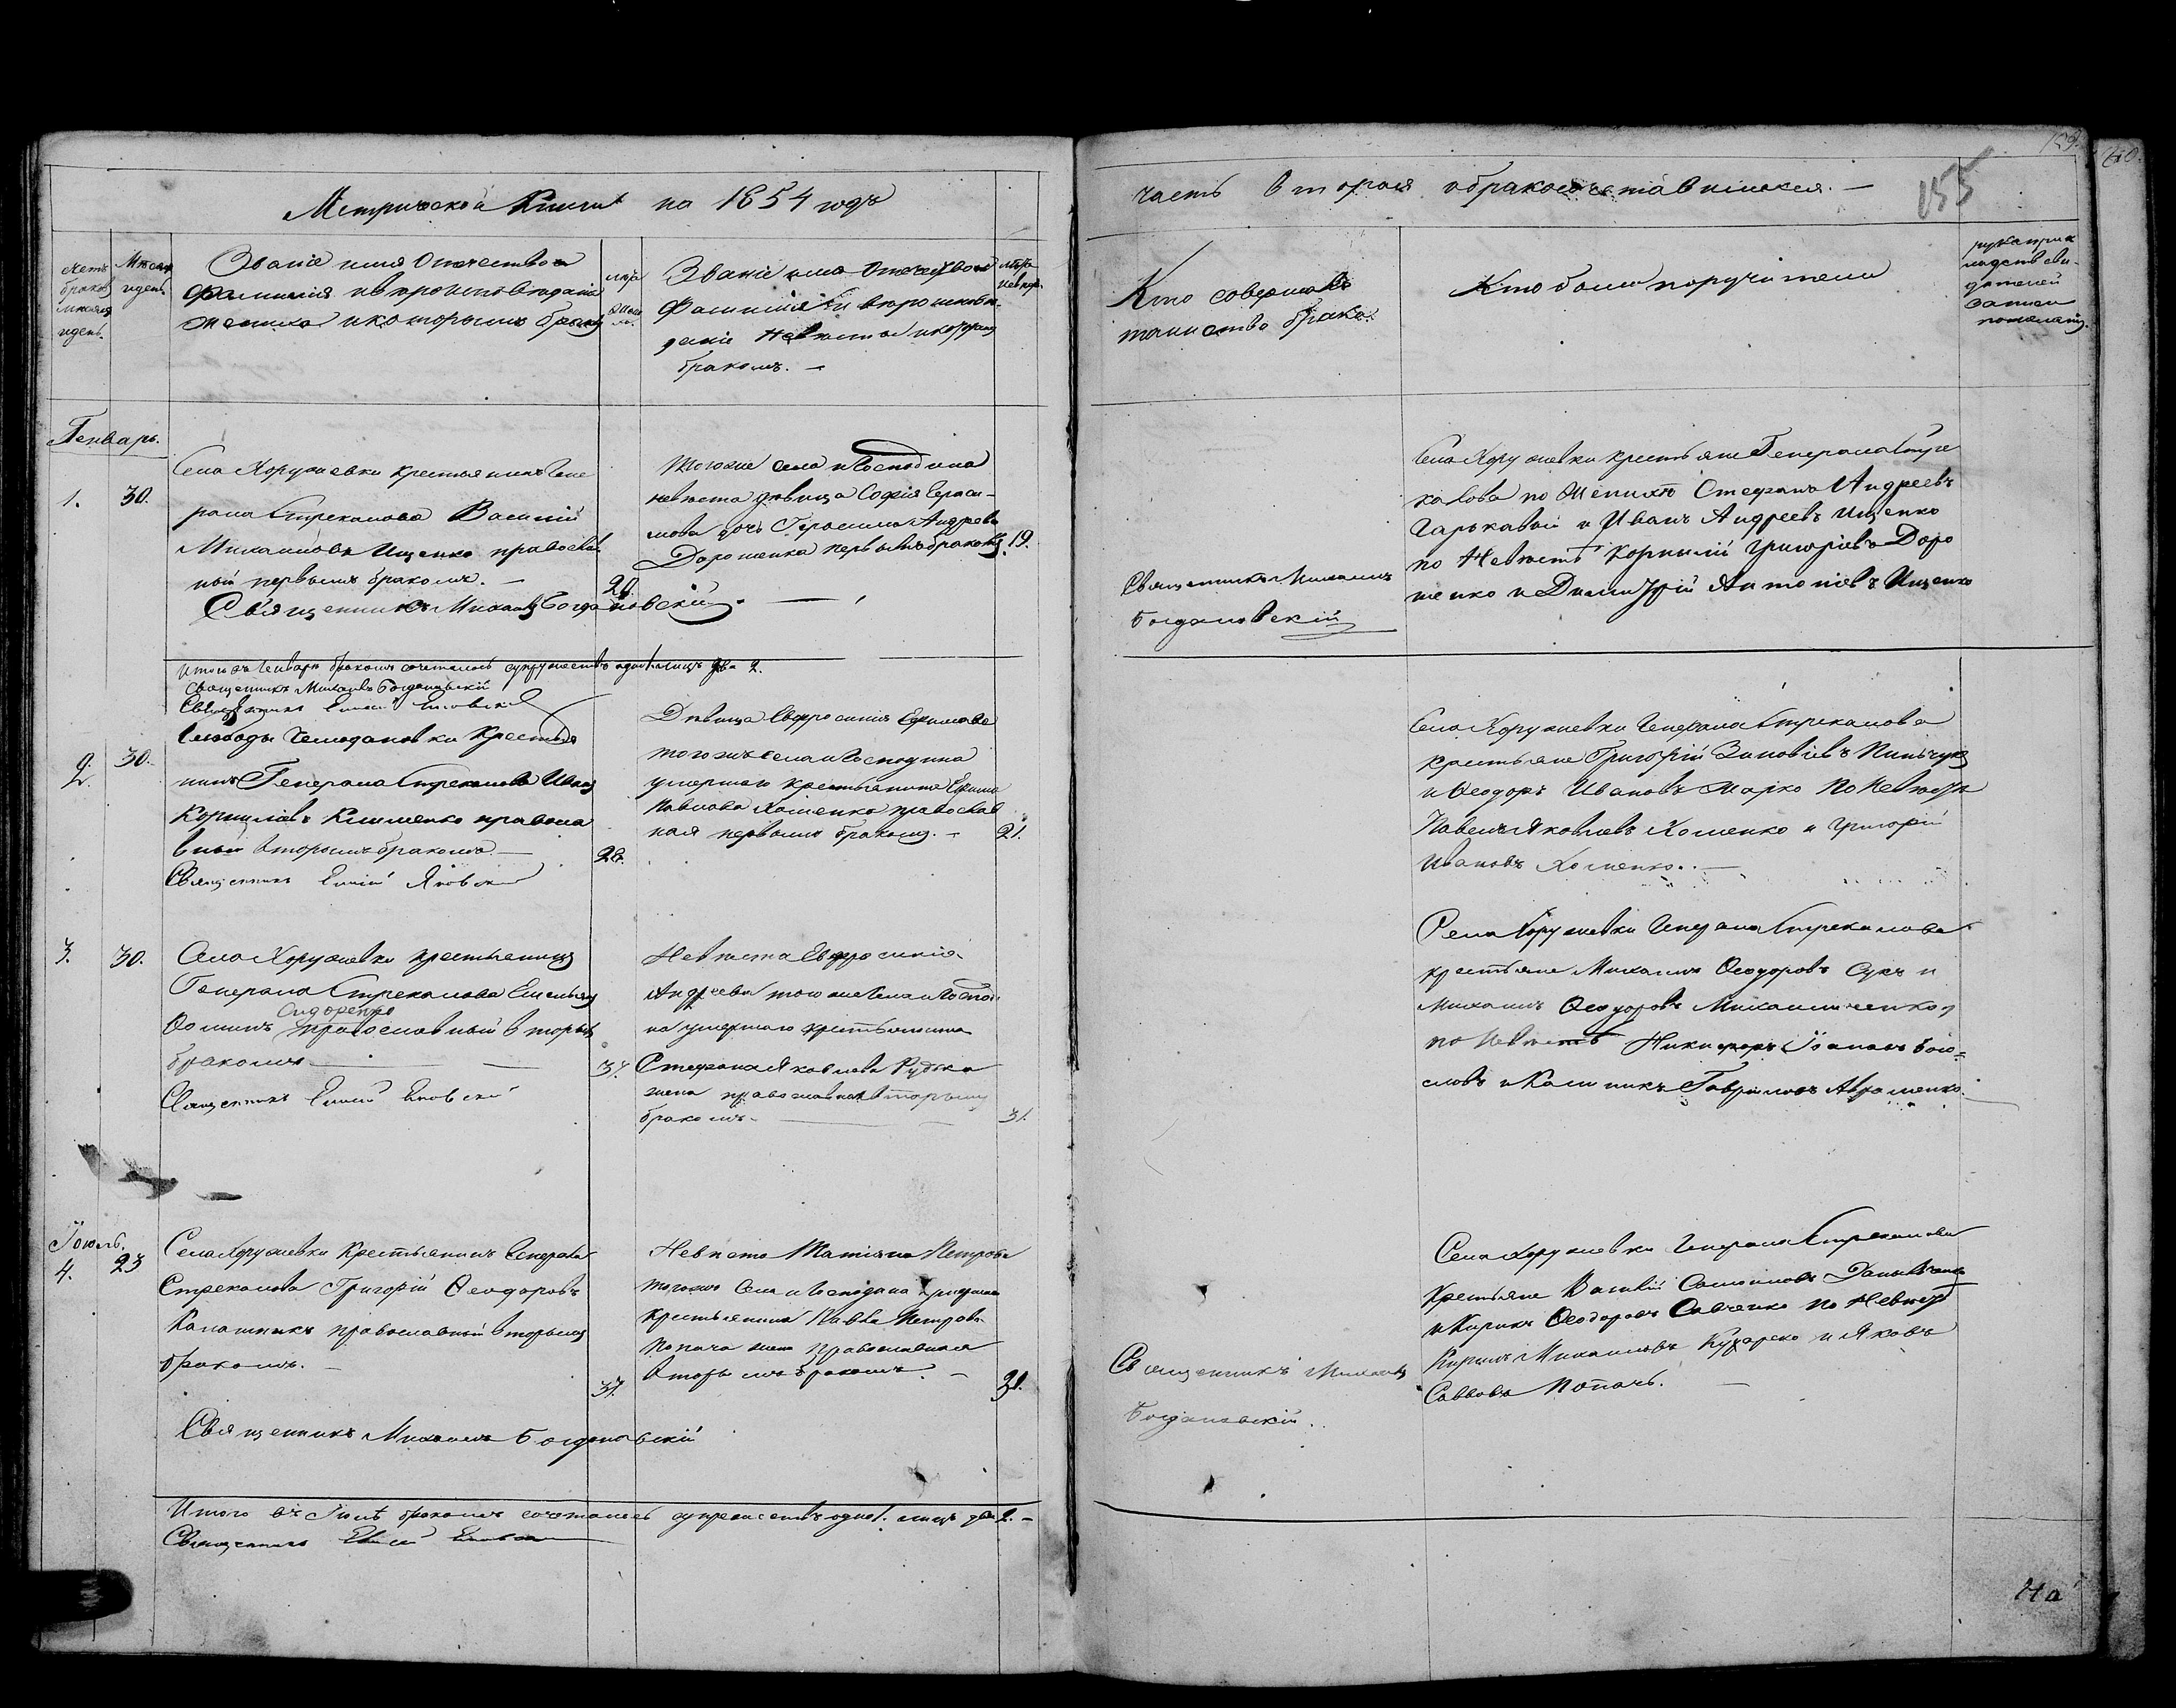 Метрической Книги на 1854 годъ
часть вторая о бракосочетавшихся. —
155
109.
счетъ браковъ
Мѣсяцъ и день
Званіе имя Отечество и
Фамилія и вѣроисповѣданіе
жениха и которымъ бракомъ
лѣта жениха
Званіе имя Отечество и
Фамилія и вѣроисповѣ-
даніе Невѣсты и которымъ
бракомъ. —
лѣта невѣс.
Кто совершалъ
таинство брака.
Кто были поручители
рукоприк
ладство сви-
дѣтелей
записи
по желанію.
Генварь.
1. 30.
Села Хоружевки крестьянинъ Гене
рала Стрекалова Василій
Михайловъ Ищенко православ
ный первымъ бракомъ. —
20.
Священникъ Михаилъ Богдановскій. —
Тогоже села и Господина
невѣста дѣвица Софія Гераси-
мова дочь Герасима Андреева
Дорошенка первымъ бракомъ 19.
Священникъ Михаилъ
Богдановскій
Села Хоружевки крестьяне Генерала Стре
калова по Женихѣ Стефанъ Андреевъ
Гарькавый и Иванъ Андреевъ Ищенко
по Невѣстѣ Корнилій Григоріевъ Доро
шенко и Димитрій Антоніевъ Ищенко
Итого въ Генварѣ бракомъ сочеталось супружествъ одно 1. лицъ два 2.
Священникъ Михаилъ Богдановскій
Священникъ
2. 30.
Слободы Чемодановки Крестья
нинъ Генерала Стрекалова Иванъ
Корниловъ Клименко правосла
вный вторымъ бракомъ. —
28.
Священникъ
Дѣвица Евфросинія Ефимова
тогожъ села и Господина
умершаго крестьянина Ефима
Павлова Хоменка православ
ная первымъ бракомъ. — 21.
Села Хоружевки Генерала Стрекалова
крестьяне Григорій Зиновіевъ Пинчукъ
и Ѳеодоръ Ивановъ Марко по Невѣстѣ
Павелъ Яковлевъ Хоменко и Григорій
Ивановъ Хоменко. —
3. 30.
Села Хоружевки крестьянинъ
Генерала Стрекалова Емельянъ
Сидоренко
Ѳоминъ православный вторымъ
бракомъ —
37.
Священникъ
Невѣста Евфросинія
Андреева тогоже села и Господи
на умершаго крестьянина
Стефана Яковлева Рудька
жена православная вторымъ
бракомъ. — 31.
Села Хоружевки Генерала Стрекалова
крестьяне Михаилъ Ѳеодоровъ Сукъ и
Михаилъ Ѳеодоровъ Михайличенко
по Невѣстѣ Никифоръ Іоанновъ Бого-
словъ и Калиникъ Гавриловъ Авраменко.
Іюль.
4. 23
Села Хоружевки Крестьянинъ Генерала
Стрекалова Григорій Ѳеодоровъ
Калашникъ православный вторымъ
бракомъ. —
37.
Священникъ Михаилъ Богдановскій
Невѣста Татіяна Петрова
тогожъ Села и Господина умершаго
крестьянина Саввы Петрова
Попача жена православная
вторымъ бракомъ. — 31.
Священникъ Михаилъ
Богдановскій.
Села Хоружевки Генерала Стрекалова
крестьяне Василій Самойловъ Данильченко
и Кирикъ Ѳеодоровъ Савченко по Невѣстѣ
Кирилъ Михаиловъ Кухаренко и Яковъ
Саввовъ Попачъ. —
Итого въ Іюлѣ бракомъ сочеталось супружествъ одно 1. лицъ два 2. —
Священникъ
На